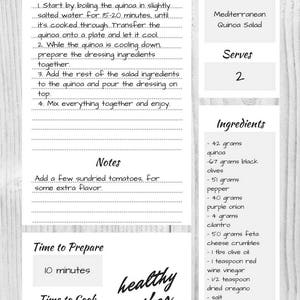 1. Start by boiling the quinoa in slightly
salted water for 15-20 minutes, until
it's cooked through. Transfer the
quinoa onto a plate and let it cool.
2. While the quinoa is cooling down,
prepare the dressing ingredients
together.
3. Add the rest of the salad ingredients
to the quinoa and pour the dressing on
top.
4. Mix everything together and enjoy.
Notes
Add a few sundried tomatoes, for
some extra flavor.
Time to Prepare
10 minutes
Time to Cook
healthy
Mediterranean
Quinoa Salad
Serves
2
Ingredients
- 42 grams
quinoa
-67 grams black
olives
- 51 grams
pepper
- 40 grams
purple onion
- 4 grams
cilantro
- 50 grams feta
cheese crumbles
- 1 tbs olive oil
- 1 teaspoon red
wine vinegar
- 1/2 teaspoon
dried oregano
- salt